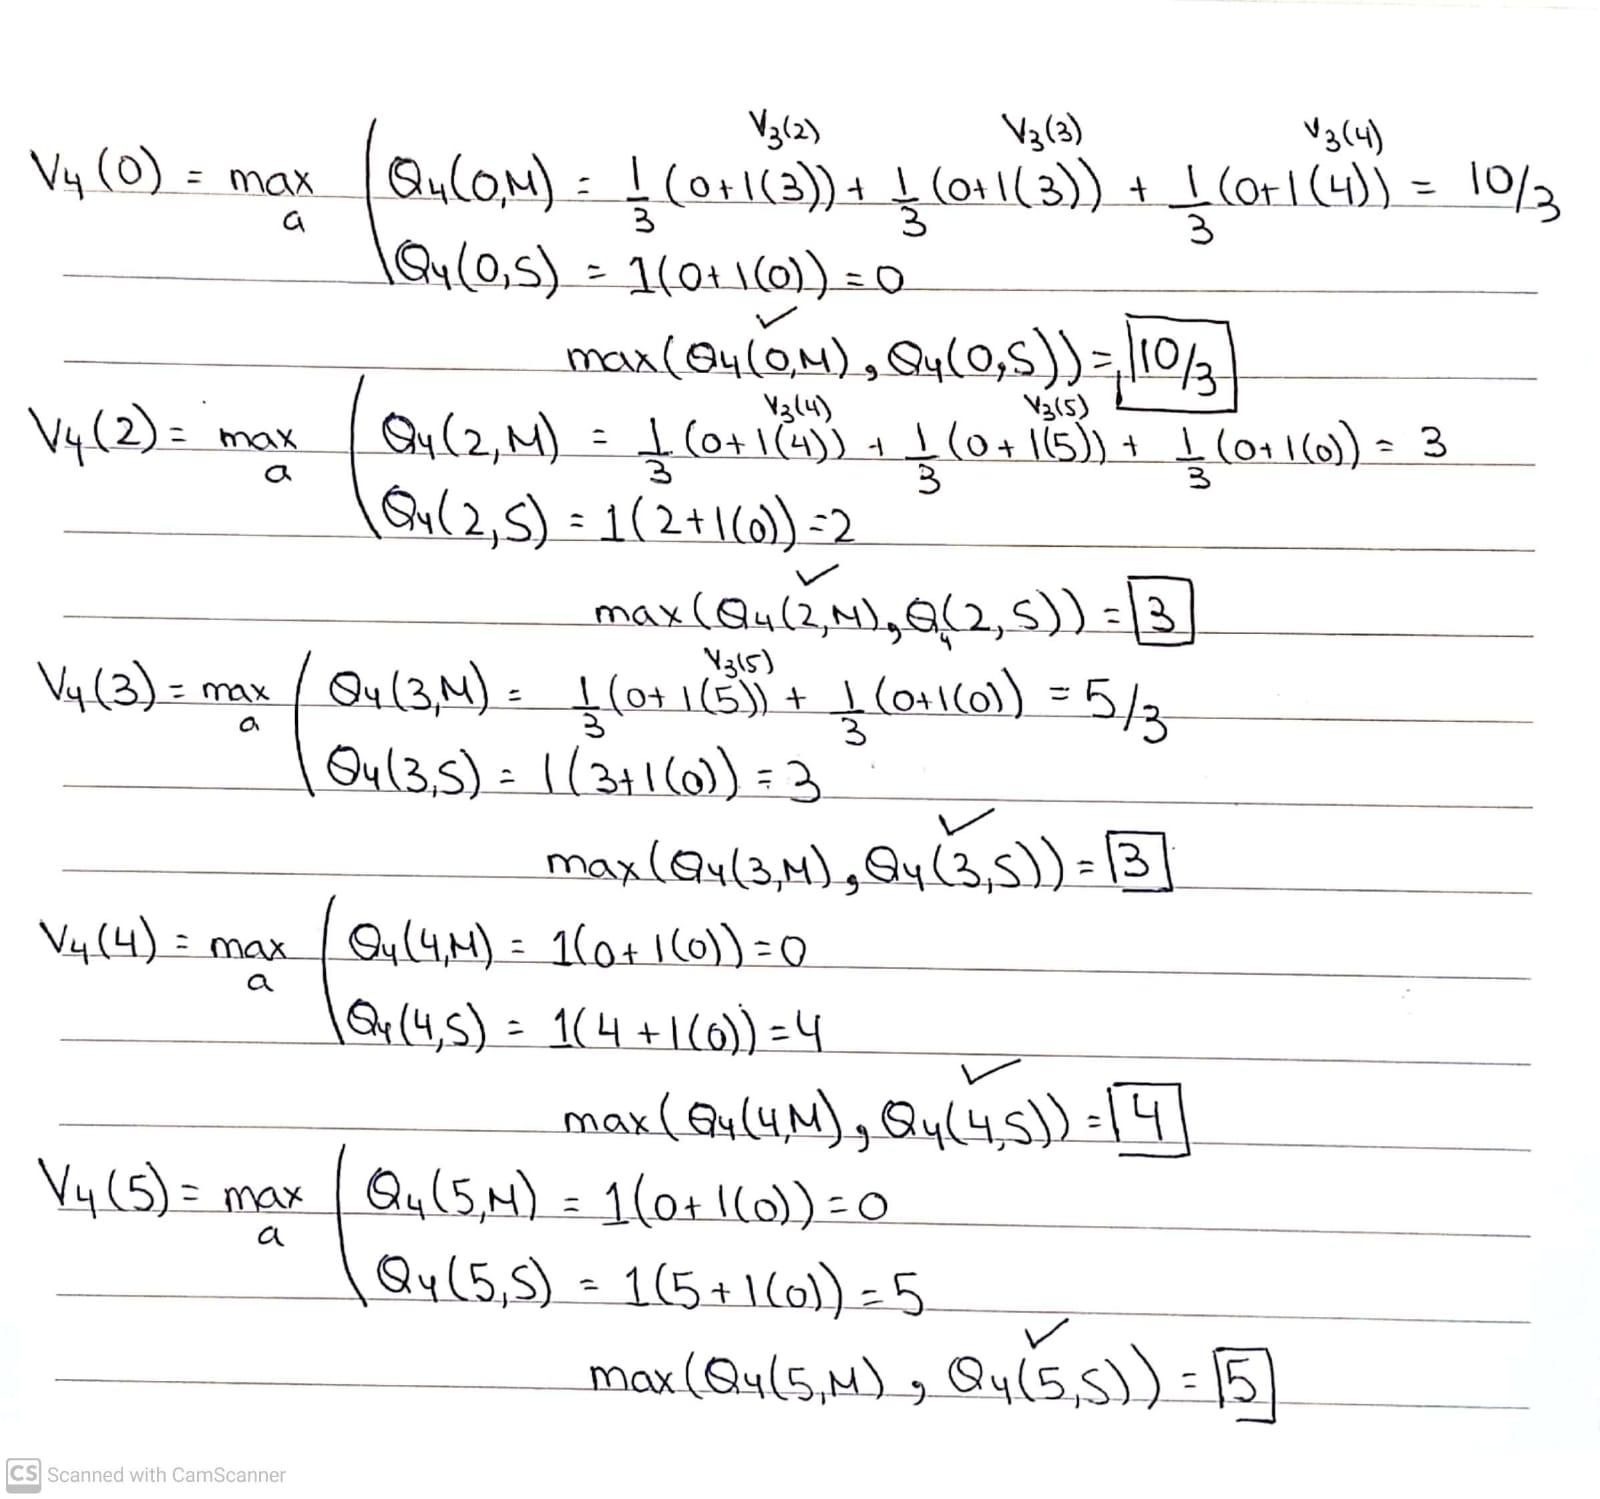 V₃(2) V₃(3) V₃(4)
V₄(0) = max a Q₄(0,M) = 1/3 (0+1(3)) + 1/3 (0+1(3)) + 1/3 (0+1(4)) = 10/3
Q₄(0,S) = 1(0+1(0)) = 0
✓
max(Q₄(0,M), Q₄(0,S)) = 10/3
V₃(4) V₃(5)
V₄(2) = max a Q₄(2,M) = 1/3 (0+1(4)) + 1/3 (0+1(5)) + 1/3 (0+1(0)) = 3
Q₄(2,S) = 1(2+1(0)) = 2
✓
max(Q₄(2,M), Q₄(2,S)) = 3
V₃(5)
V₄(3) = max a Q₄(3,M) = 1/3 (0+1(5)) + 1/3 (0+1(0)) = 5/3
Q₄(3,S) = 1(3+1(0)) = 3
✓
max(Q₄(3,M), Q₄(3,S)) = 3
V₄(4) = max a Q₄(4,M) = 1(0+1(0)) = 0
Q₄(4,S) = 1(4+1(0)) = 4
✓
max(Q₄(4,M), Q₄(4,S)) = 4
V₄(5) = max a Q₄(5,M) = 1(0+1(0)) = 0
Q₄(5,S) = 1(5+1(0)) = 5
✓
max(Q₄(5,M), Q₄(5,S)) = 5
CS Scanned with CamScanner